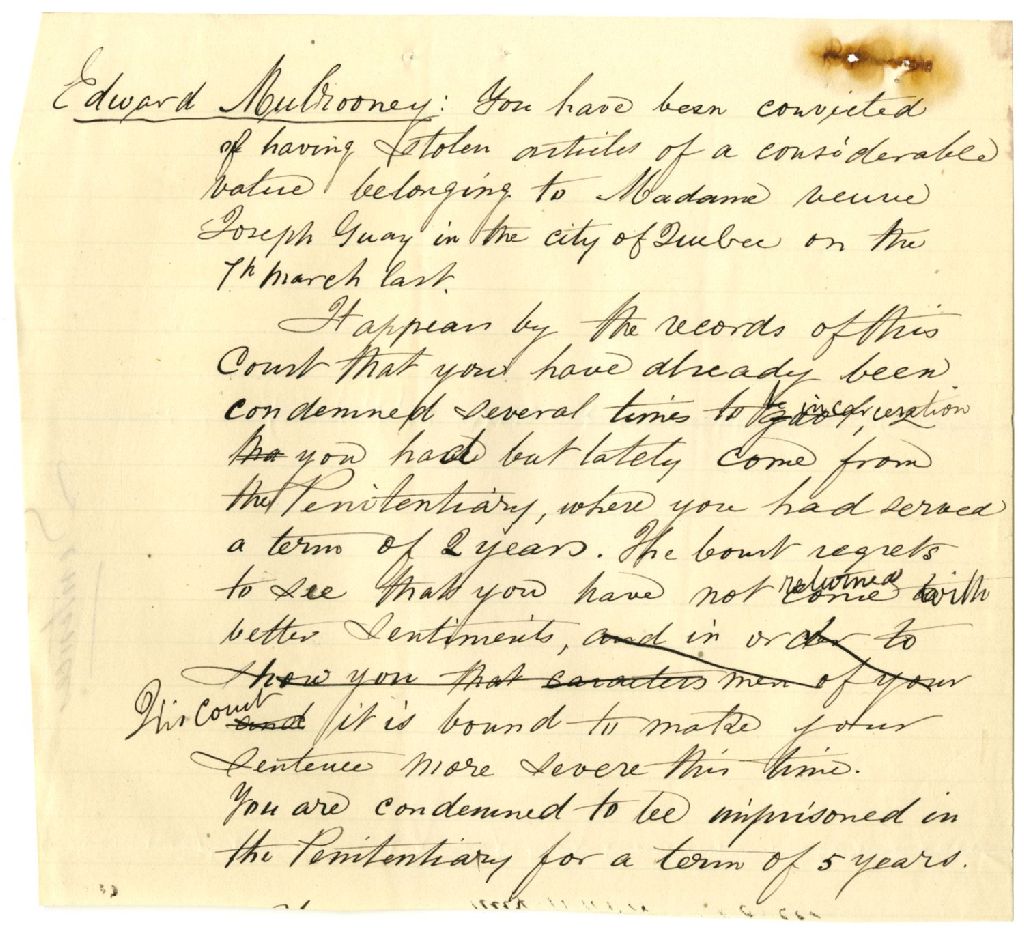 Edward Mulrooney: You have been convicted
of having stolen articles of a considerable
value belonging to Madame veuve
Joseph Guay in the city of Quebec on the
7th March last.
It appears by the records of this
Court that you have already been
condemned several times to be incarceration
gaol,
tha you had but lately come from
the Penitentiary, where you had served
a term of 2 years. The Court regrets
to see that you have not returned with
come
better sentiments, and in order to
show you that caracters men of your
This Court and it is bound to make your
sentence more severe this time.
You are condemned to be imprisoned in
the Penitentiary for a term of 5 years.